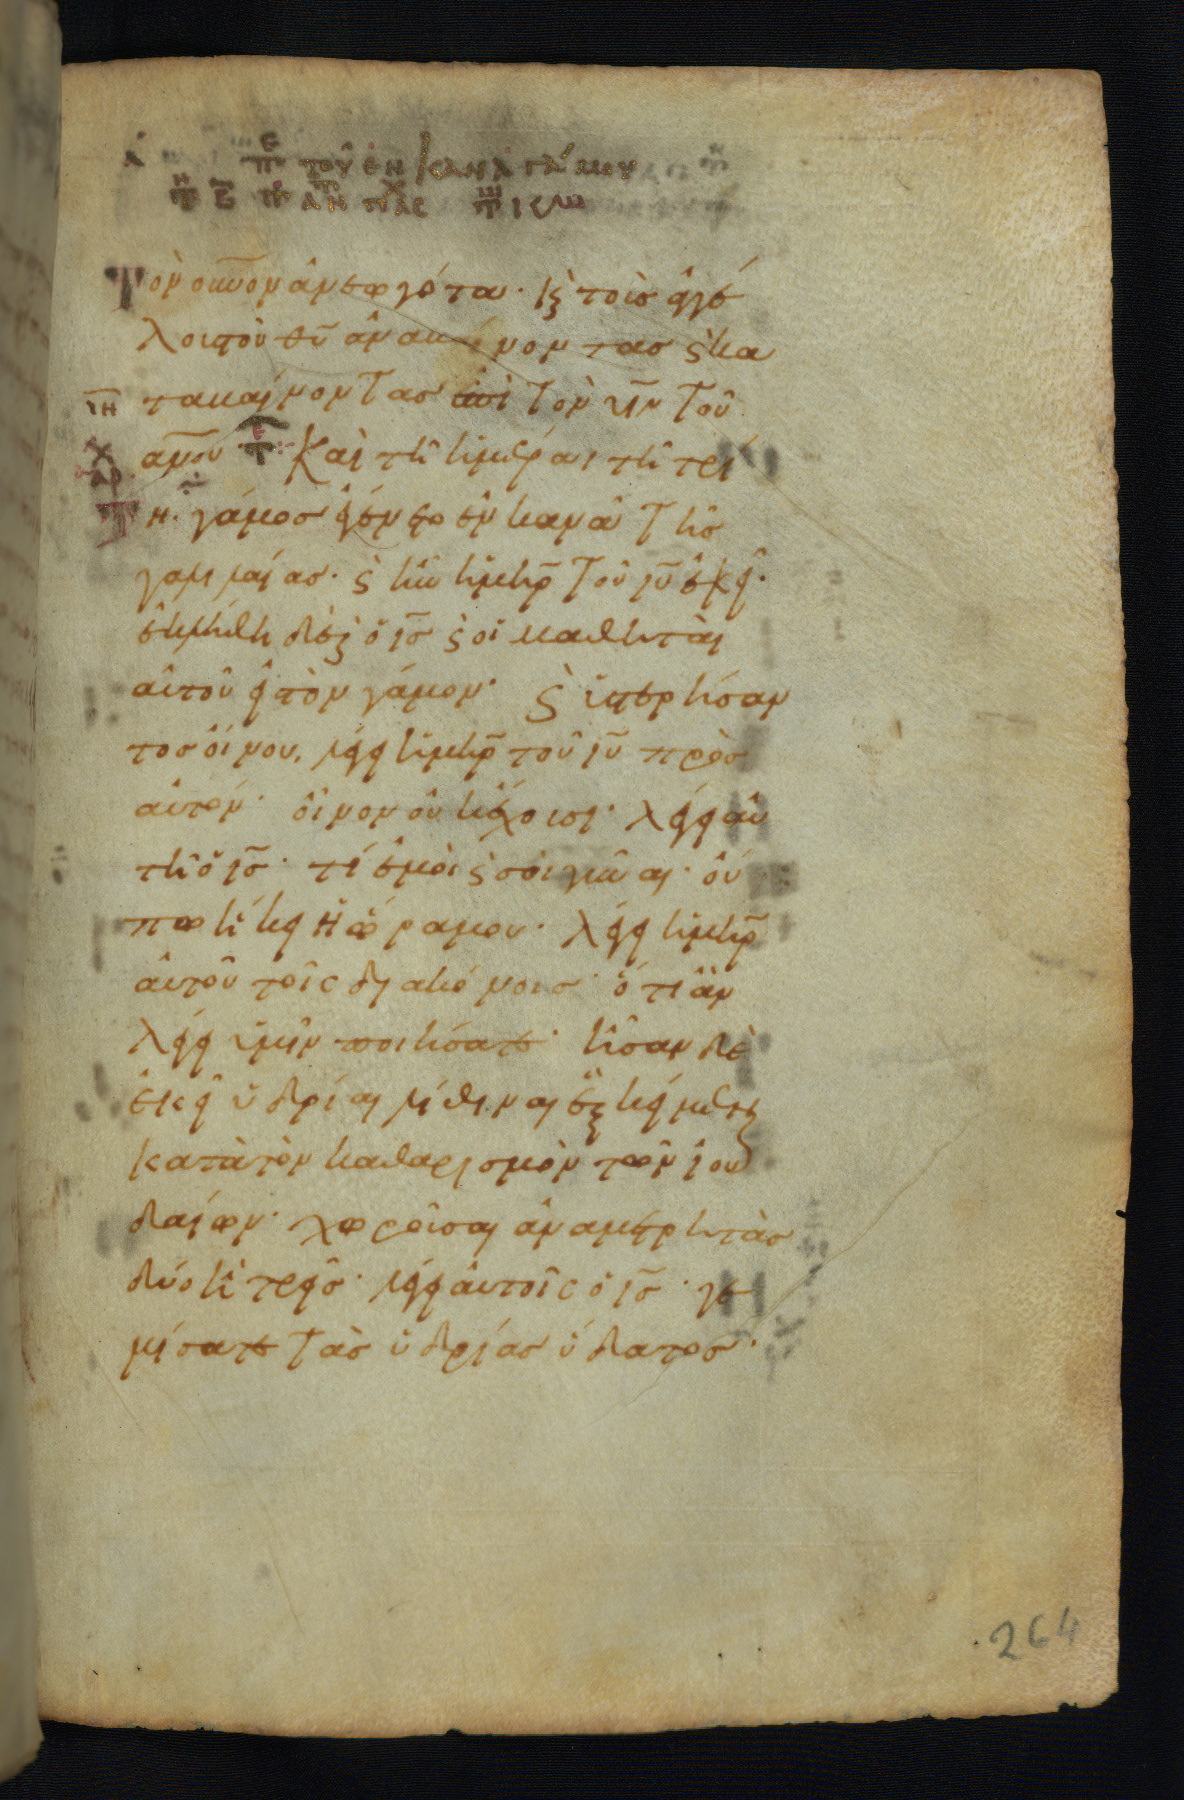 περὶ τοῦ ἐν Κανᾶ γάμου
Τὸν οὐνον ἀνεωγότα· κ(αὶ) τοὺς ἀγγέ
λους τοῦ θυ ἀναβαίνοντας κ(αὶ) κα
ταβαίνοντας ἐπὶ τὸν υν τοῦ
ανου· Καὶ τῆ ἡμέραι τῆ τρί
τη· γάμος ἐγένετο ἐν κανᾶ τῆς
γαλιλαίας· κ(αὶ) ἦν ἡ μηρ τοῦ ιυ ἐκεῖ·
ἐκλήθη δὲ κ(αὶ) ὁ ις κ(αὶ) οἱ μαθηταὶ
αὐτοῦ εἰς τὸν γάμον· κ(αὶ) ὑστερήσαν
τος οἴνου, λέγει ἡ μηρ τοῦ ιυ πρὸς
αὐτόν· οἶνον οὐκ ἔχουσι· λέγει αὐ
τῆ ὁ ις· τί ἐμοὶ κ(αὶ) σοὶ γύναι· οὔ
πω ἥκει ἡ ὥρα μου· λέγει ἡ μηρ
αὐτοῦ τοῖς διακόνοις· ὅ τι ἂν
λέγει ὑμῖν ποιήσατε· ἦσαν δὲ
ἐκεῖ ὑδρίαι λίθιναι ἓξ κείμεναι
κατὰ τὸν καθαρισμὸν τῶν ἰου
δαίων· χωροῦσαι ἀνὰ μετρητὰς
δύο ἢ τρεῖς· λέγει αὐτοῖς ὁ ις· γε
μίσατε τὰς ὑδρίας ὕδατος·
264